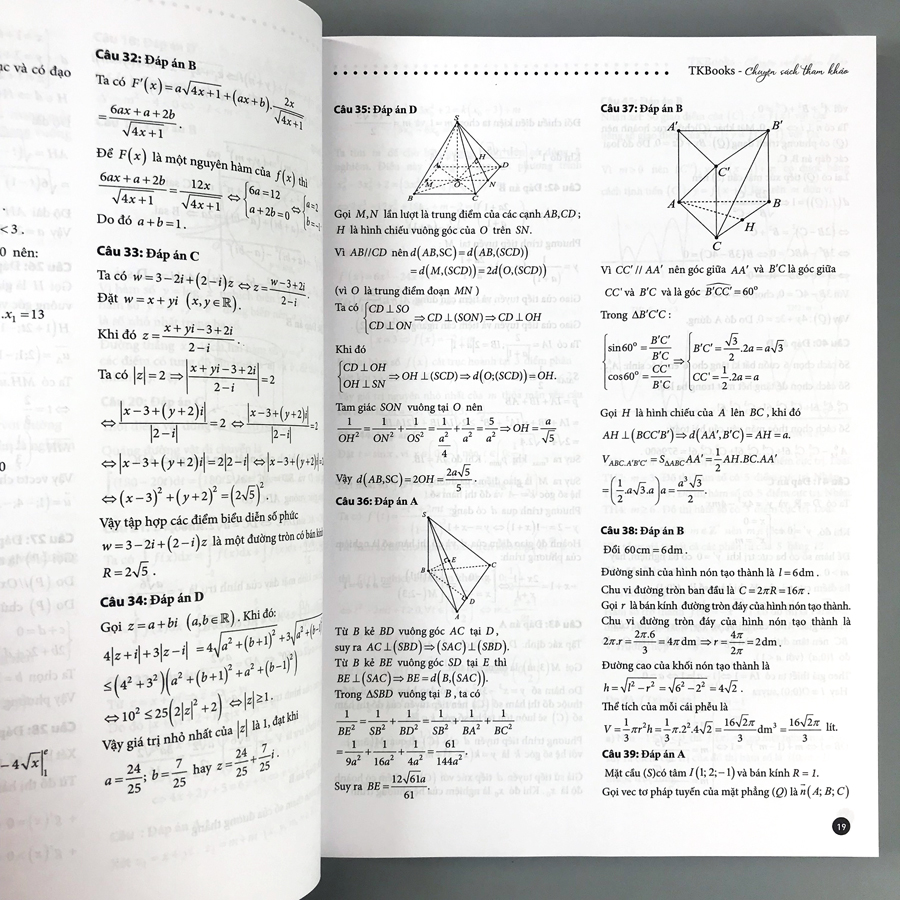 ục và có đạo
< 3 .
0 nên:
.x₁ = 13
0
− 4√x |₁ᵉ
Câu 32: Đáp án B
Ta có F′(x) = a√(4x+1) + (ax+b).2x/√(4x+1)
= (6ax+a+2b)/√(4x+1) .
Để F(x) là một nguyên hàm của f(x) thì
(6ax+a+2b)/√(4x+1) = 12x/√(4x+1) ⇔ {6a=12; a+2b=0 ⇔ {a=2; b=−1
Do đó a+b=1.
Câu 33: Đáp án C
Ta có w=3−2i+(2−i)z ⇔ z=(w−3+2i)/(2−i).
Đặt w=x+yi (x,y∈ℝ).
Khi đó z=(x+yi−3+2i)/(2−i).
Ta có |z|=2 ⇒ |(x+yi−3+2i)/(2−i)|=2
⇔ |x−3+(y+2)i|/|2−i|=2 ⇔ |x−3+(y+2)i|/|2−i|=2
⇔|x−3+(y+2)i|=2|2−i| ⇔|x−3+(y+2)i|=2
⇔(x−3)²+(y+2)²=(2√5)²
Vậy tập hợp các điểm biểu diễn số phức
w=3−2i+(2−i)z là một đường tròn có bán kính
R=2√5.
Câu 34: Đáp án D
Gọi z=a+bi (a,b∈ℝ). Khi đó:
4|z+i|+3|z−i|=4√(a²+(b+1)²)+3√(a²+(b−1
≤(4²+3²)(a²+(b+1)²+a²+(b−1)²)
⇔10²≤25(2|z|²+2) ⇔|z|≥1.
Vậy giá trị nhỏ nhất của |z| là 1, đạt khi
a=24/25; b=7/25 hay z=24/25+7/25 i.
TKBooks - Chuyên sách tham khảo
Câu 35: Đáp án D
S
A
H
D
M
O
N
B
C
Gọi M,N lần lượt là trung điểm của các cạnh AB,CD;
H là hình chiếu vuông góc của O trên SN.
Vì AB//CD nên d(AB,SC)=d(AB,(SCD))
=d(M,(SCD))=2d(O,(SCD))
(vì O là trung điểm đoạn MN)
Ta có {CD⊥SO; CD⊥ON ⇒CD⊥(SON)⇒CD⊥OH
Khi đó
{CD⊥OH; OH⊥SN ⇒OH⊥(SCD)⇒d(O;(SCD))=OH.
Tam giác SON vuông tại O nên
1/OH²=1/ON²+1/OS²=1/(a²/4)+1/a²=5/a²⇒OH=a/√5
Vậy d(AB,SC)=2OH=2a√5/5.
Câu 36: Đáp án A
S
E
B
C
D
A
Từ B kẻ BD vuông góc AC tại D,
suy ra AC⊥(SBD)⇒(SAC)⊥(SBD).
Từ B kẻ BE vuông góc SD tại E thì
BE⊥(SAC)⇒BE=d(B,(SAC)).
Trong ΔSBD vuông tại B, ta có
1/BE²=1/SB²+1/BD²=1/SB²+1/BA²+1/BC²
=1/9a²+1/16a²+1/4a²=61/144a².
Suy ra BE=12√61a/61.
Câu 37: Đáp án B
A′
B′
C′
A
B
H
C
Vì CC′ // AA′ nên góc giữa AA′ và B′C là góc giữa
CC′ và B′C và là góc B′CC′=60°
Trong ΔB′C′C :
{sin60°=B′C′/B′C; cos60°=CC′/B′C ⇒ {B′C′=√3/2.2a=a√3; CC′=1/2.2a=a
Gọi H là hình chiếu của A lên BC, khi đó
AH⊥(BCC′B′)⇒d(AA′,B′C)=AH=a.
V_ABC.A′B′C′=S_ΔABC.AA′=1/2AH.BC.AA′
=(1/2.a√3.a)a=a³√3/2.
Câu 38: Đáp án B
Đổi 60cm=6dm.
Đường sinh của hình nón tạo thành là l=6dm.
Chu vi đường tròn ban đầu là C=2πR=16π.
Gọi r là bán kính đường tròn đáy của hình nón tạo thành.
Chu vi đường tròn đáy của hình nón tạo thành là
2π.r=2π.6/3=4πdm ⇒r=4π/2π=2dm.
Đường cao của khối nón tạo thành là
h=√(l²−r²)=√(6²−2²)=4√2.
Thể tích của mỗi cái phễu là
V=1/3πr²h=1/3π.2².4√2=16√2π/3 dm³=16√2π/3 lít.
Câu 39: Đáp án A
Mặt cầu (S)có tâm I(1;2;−1)và bán kính R = 1.
Gọi vec tơ pháp tuyến của mặt phẳng (Q) là n⃗(A;B;C)
19